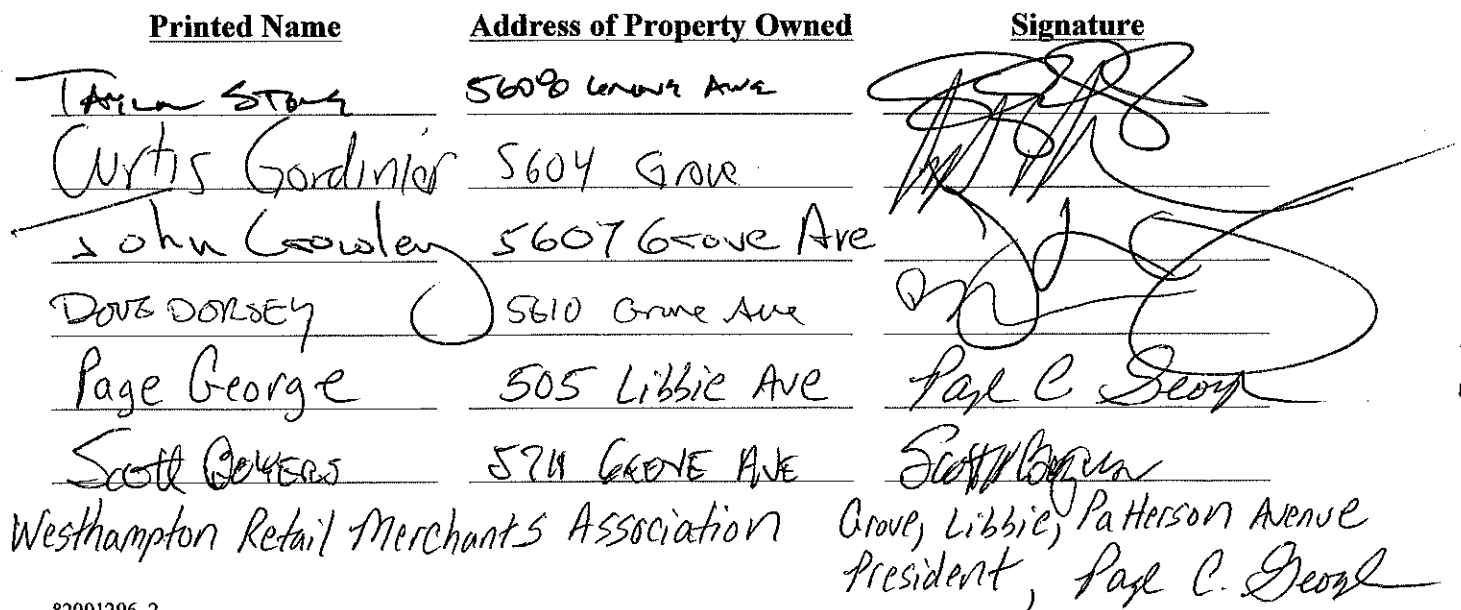 Printed Name Address of Property Owned Signature
Taylor Stone 5608 Grove Ave
Curtis Gordinier 5604 Grove
John Crowley 5607 Grove Ave
DOUG DORSEY 5610 Grove Ave
Page George 505 Libbie Ave Page C George
Scott 5711 GROVE AVE Scott
Westhampton Retail Merchants Association Grove, Libbie, Patterson Avenue
President, Page C. George
82091296_2